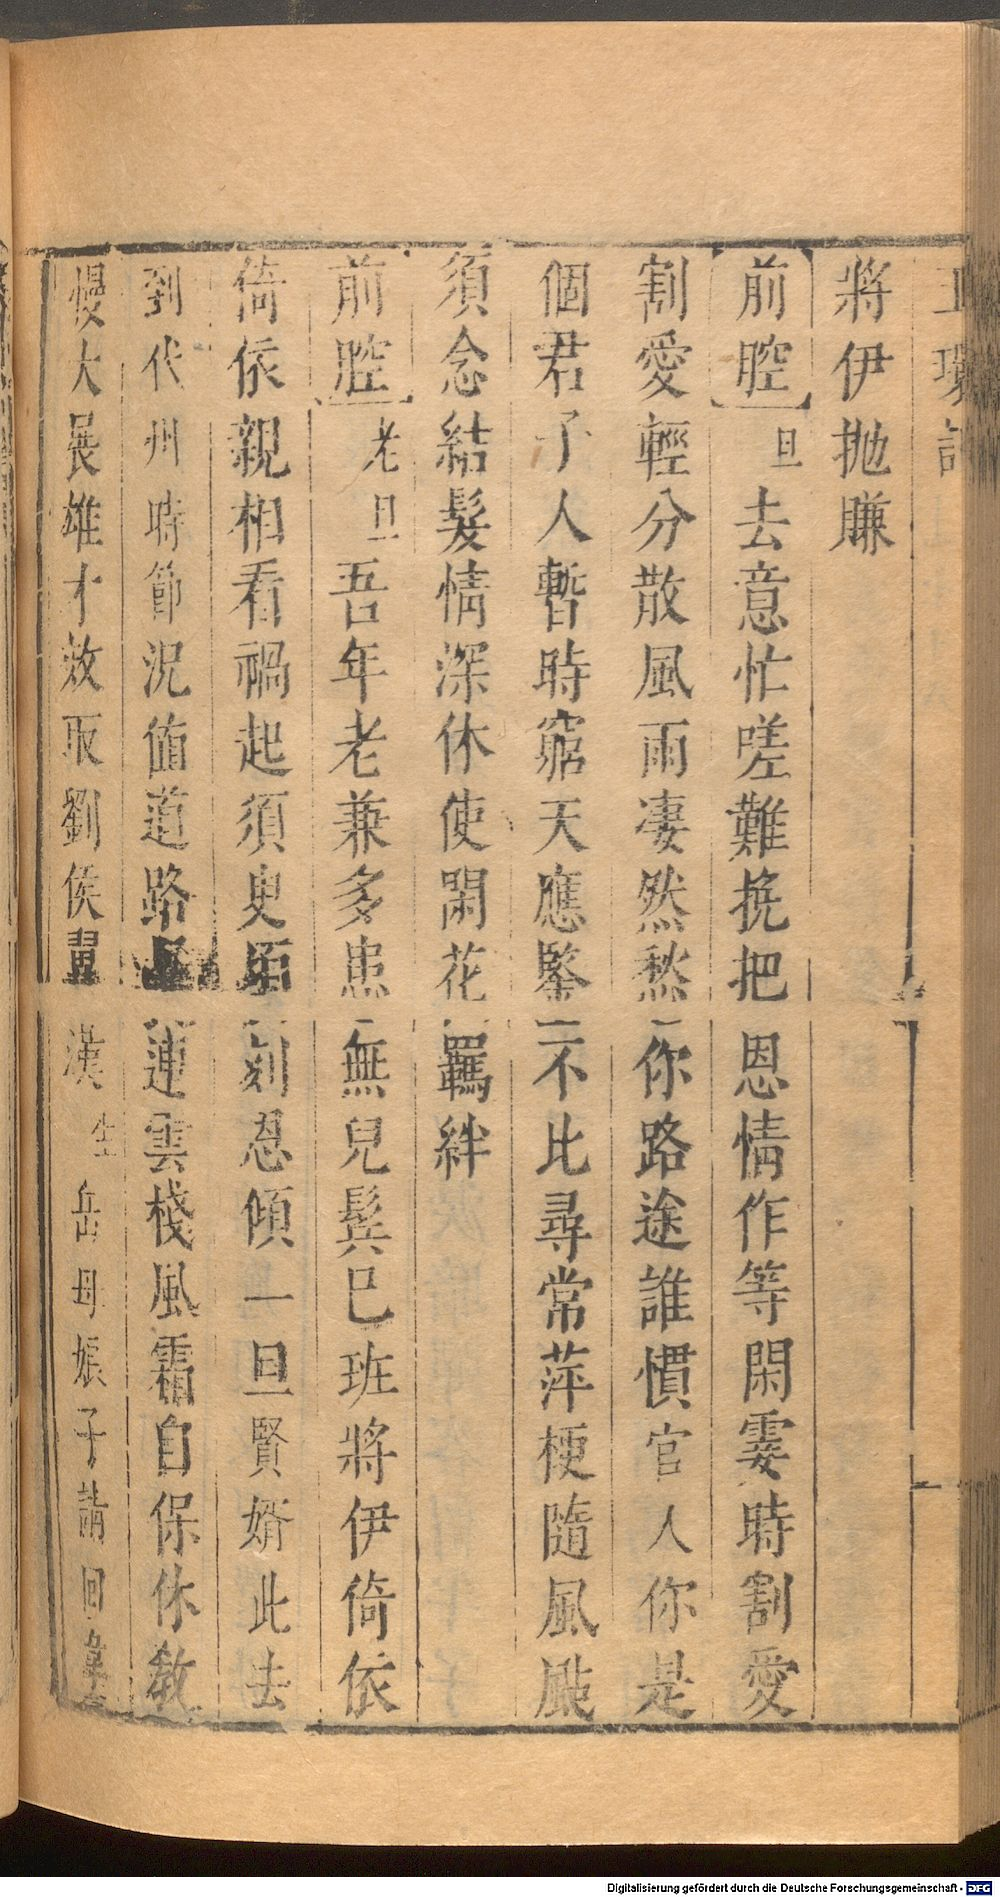 玉環記
將伊拋賺
前腔 旦 去意忙嗟難挽把恩情作等閑霎時割愛
割愛輕分散風雨凄然愁你路途誰慣官人你是
個君子人暫時窮天應鑒不比尋常萍梗隨風颭
須念結髮情深休使閑花羈絆
前腔 老旦 吾年老兼多患無兒鬂已班將伊倚依
倚依親相看禍起須臾頃刻恩傾一旦賢婿此去
到代州時節況値道路連雲棧風霜自保休教
慢大展雄才效取劉侯翼漢 生 岳母娘子請回
Digitalisierung gefördert durch die Deutsche Forschungsgemeinschaft - DFG